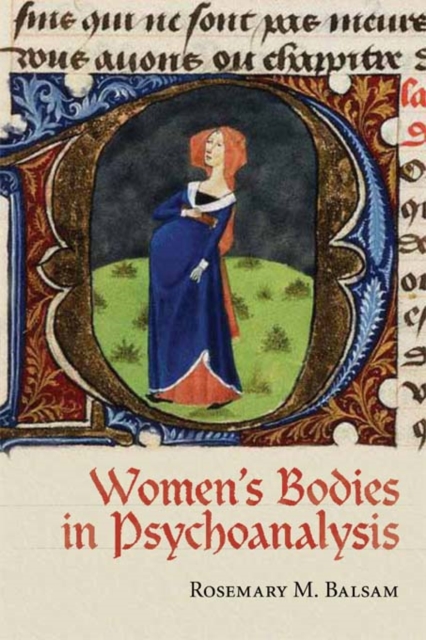 sins qui ne sont pas meurs
vous avons ou chappitre
Women's Bodies
in Psychoanalysis
ROSEMARY M. BALSAM